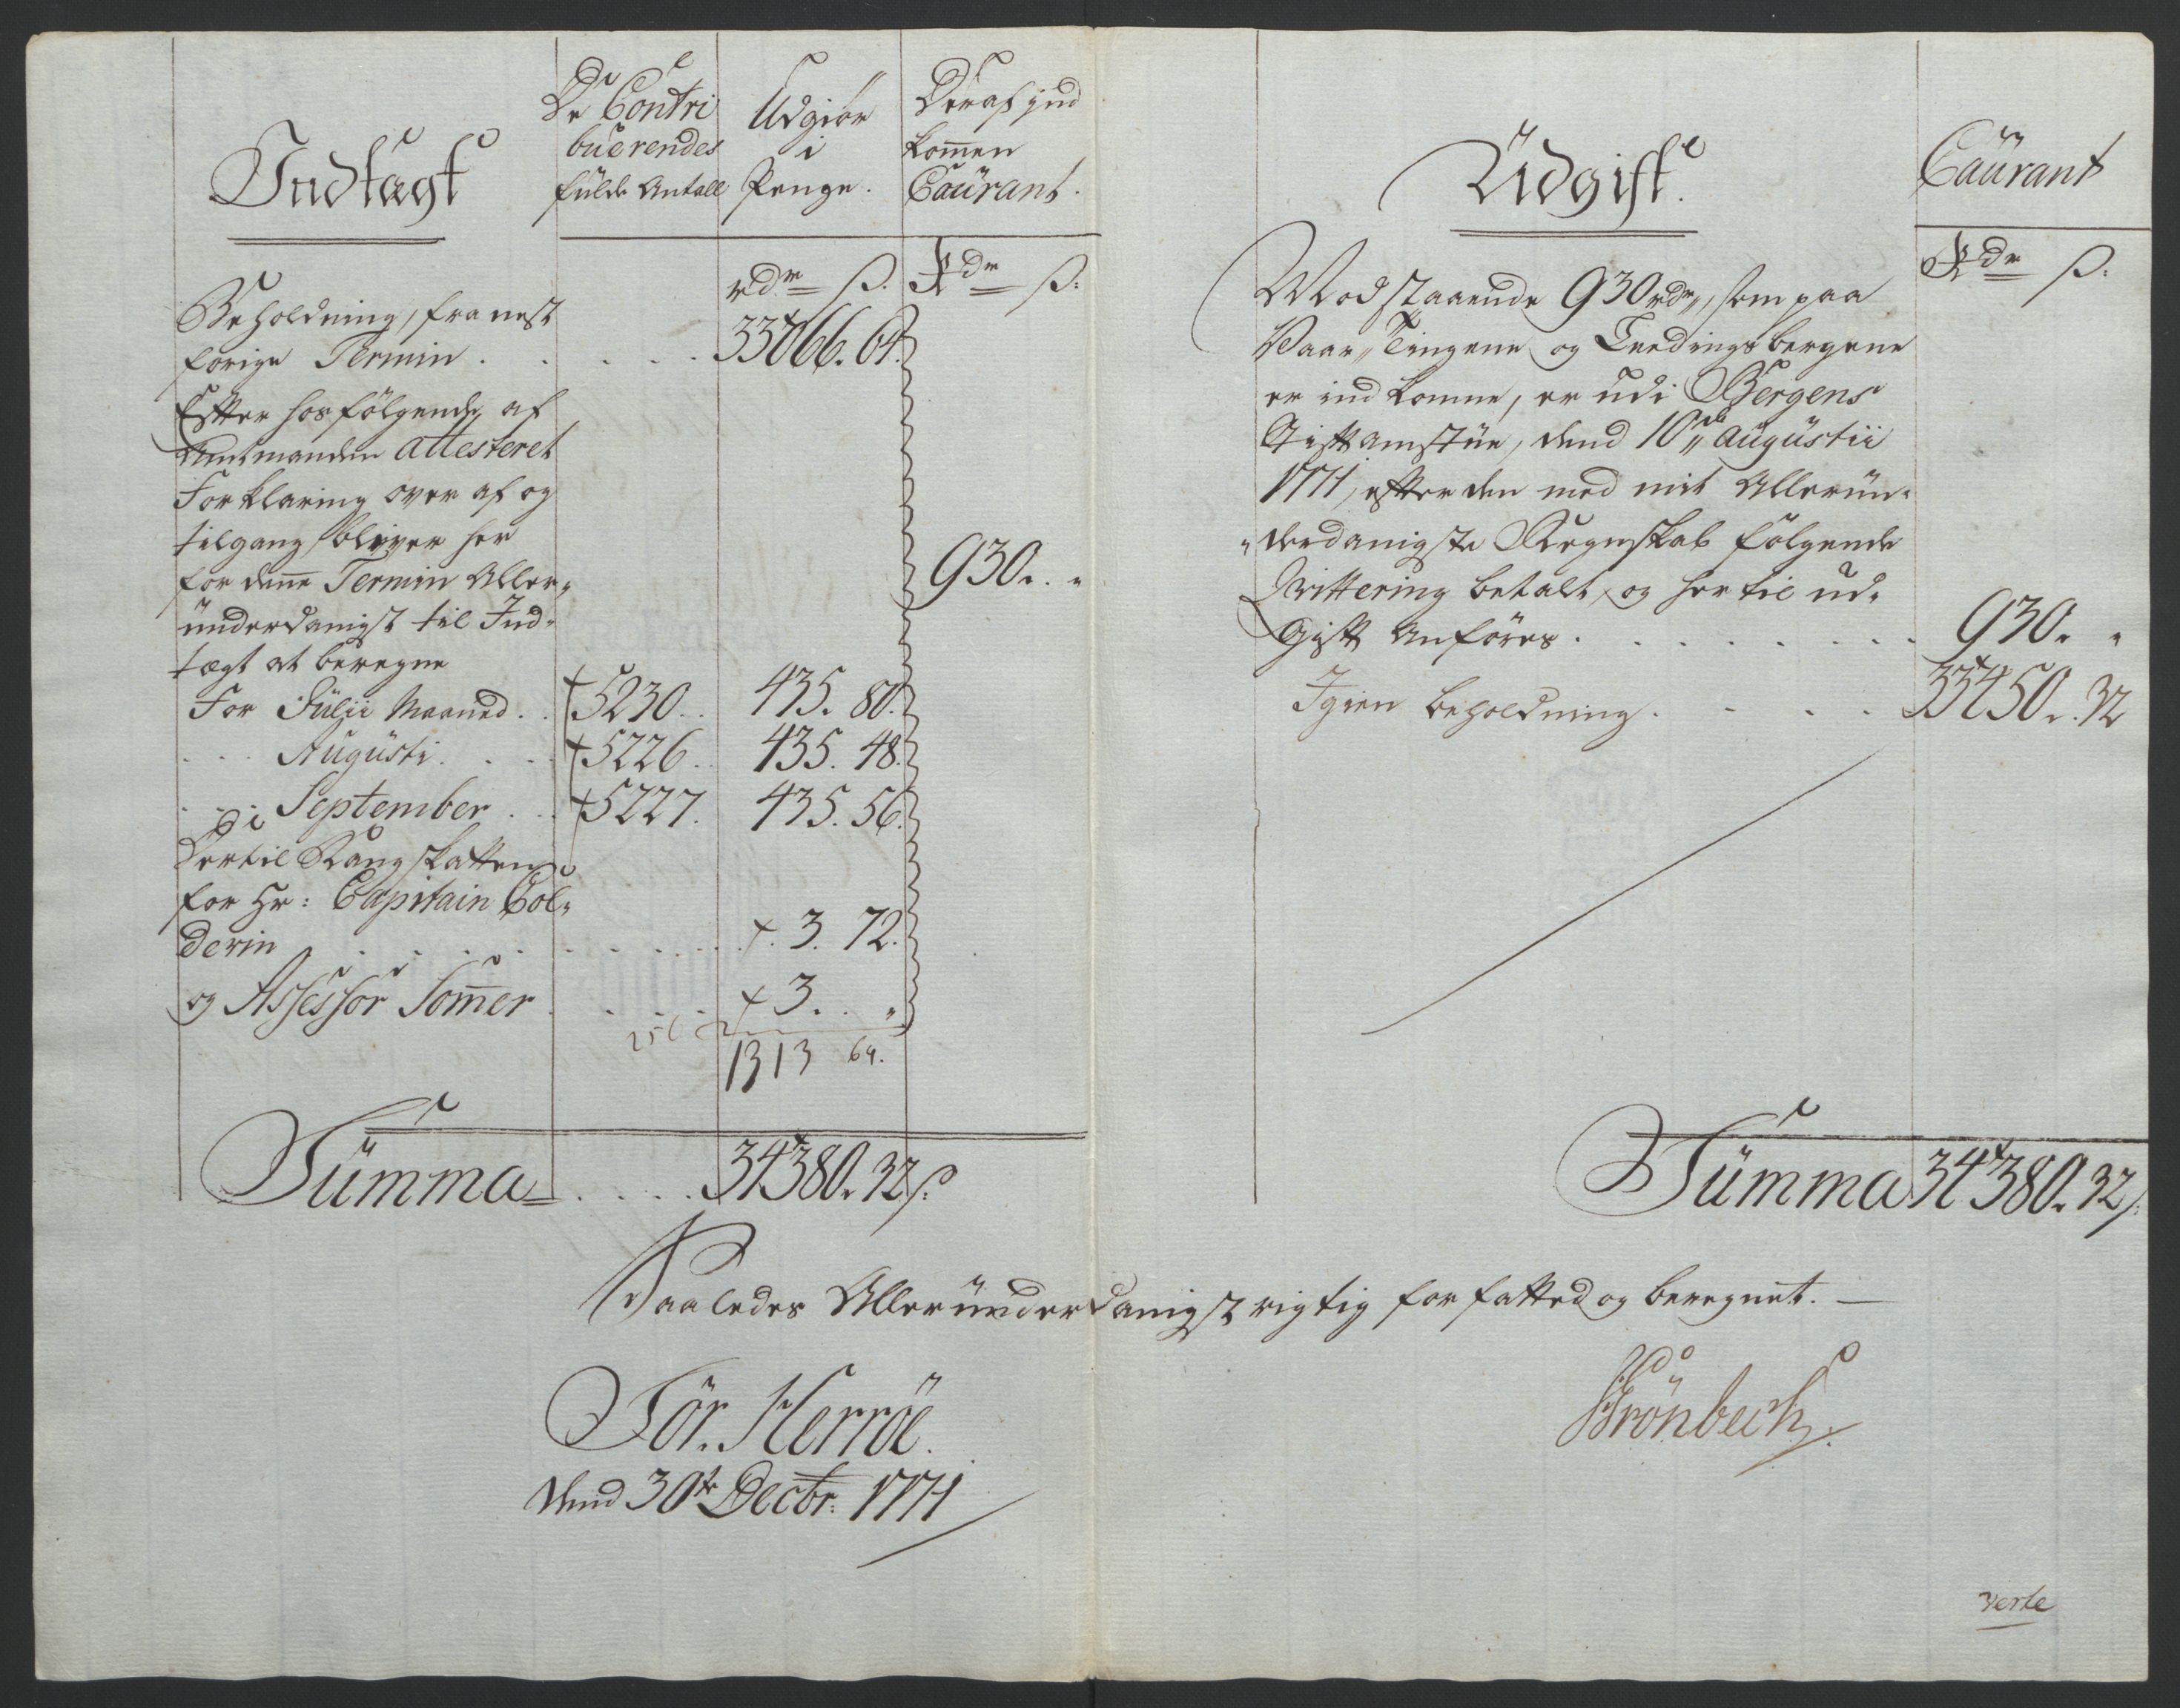 Indtægt
De Contri
buerendes
fulde Antall
Udgiør
i
Penge.
Deraf ind
kom̄en
Caürant.
rdr ß.
Rdr ß:
Beholdning, fra nest
forige Termin . . . . . 33066. 64.
Efter hosfølgende af
Amtmanden attesteret
Forklaring over af og
tilgang bliver her
for den̄e Termin Aller„
ünderdanigst til Ind„
tægt at beregne
930. „
For Julji Maaned . . 5230. . 435. 80.
. . . Augusti. . . . 5226. . 435. 48.
. . . September . . 5227. 435. 56.
Dertil Rangskatten
for Hr: Capitain Col„
derin . . . . . . . . . 3. 72.
og Assessor Som̄er . . . . 3. . „
1313 64.
Summa . . . . 34380. 32 ß.
Üdgift.
Caürant
Rdr ß:
Modstaaende 930 rdr, som paa
Vaar Tingene og Leedingsbergene
er indkomne, er udi Bergens
Stiftamstue, dend 10de Augüstii
1771, efter den med mit Allerün„
„derdanigste Regnskab følgende
Qvittering betalt, og her til ud„
Gift Anføres . . . . . . . 930. „
Igien beholdning . . . . 33450. 32
Summa 34380. 32 ß.
Saaledes Alleründerdanigst rigtig forfatted og beregnet. —
Sör. Herröe.
dend 30te Decbr: 1771
Grönbech.
verte